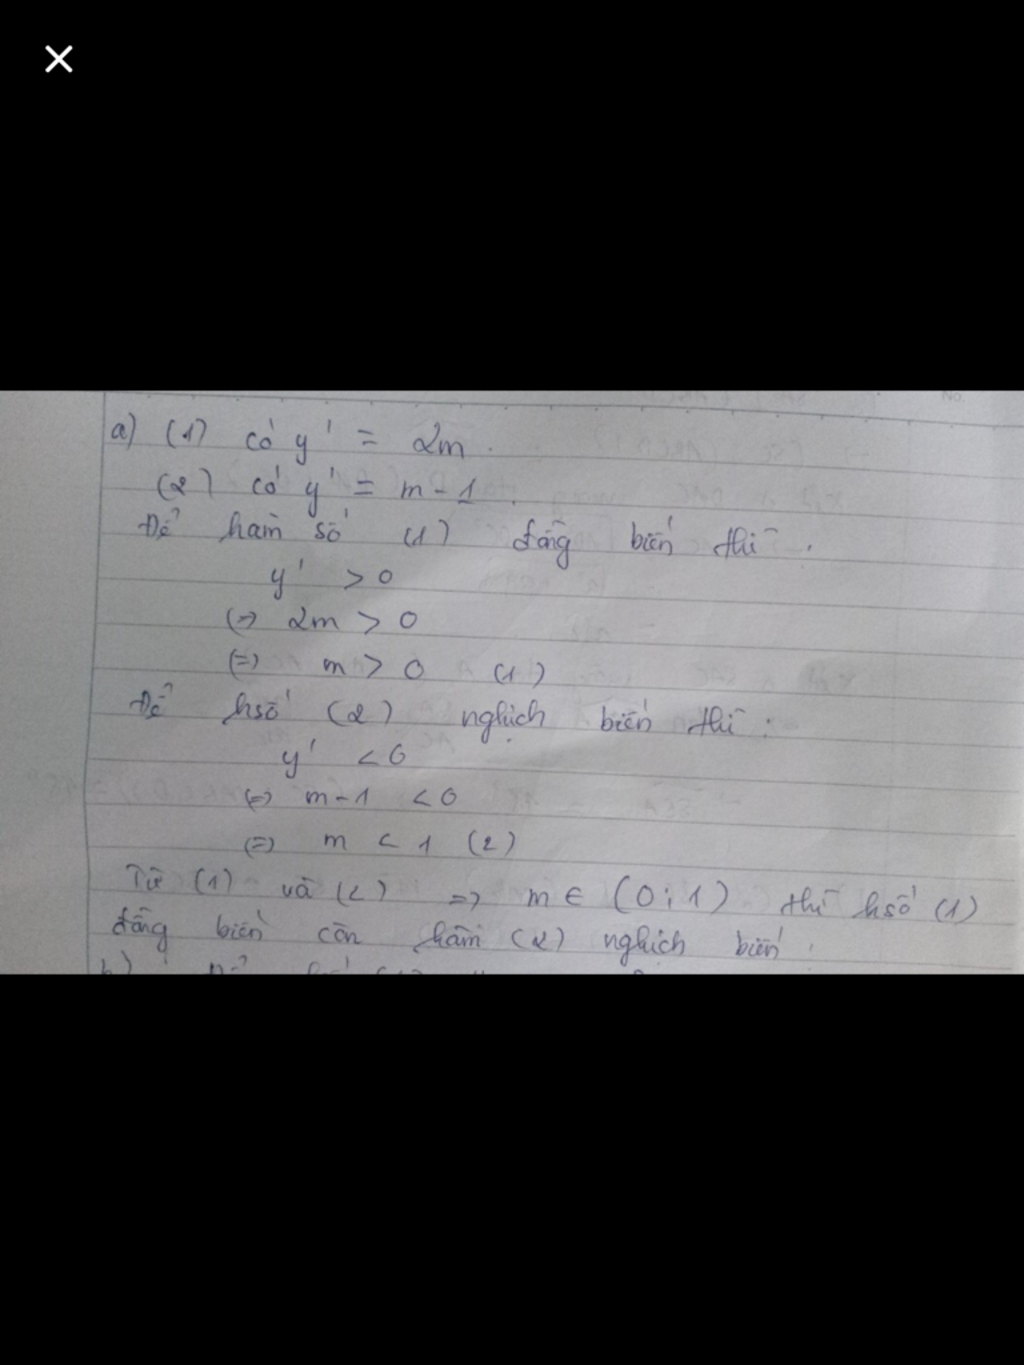 a) (1) có y' = 2m.
(2) có y' = m - 1.
Để hàm số (1) đồng biến thì.
y' > 0
(=) 2m > 0
(=) m > 0 (1)
Để hsố (2) nghịch biến thì:
y' < 0
(=) m - 1 < 0
(=) m < 1 (2)
Từ (1) và (2) => m ∈ (0;1) thì hsố (1)
đồng biến còn hàm (2) nghịch biến.
b)